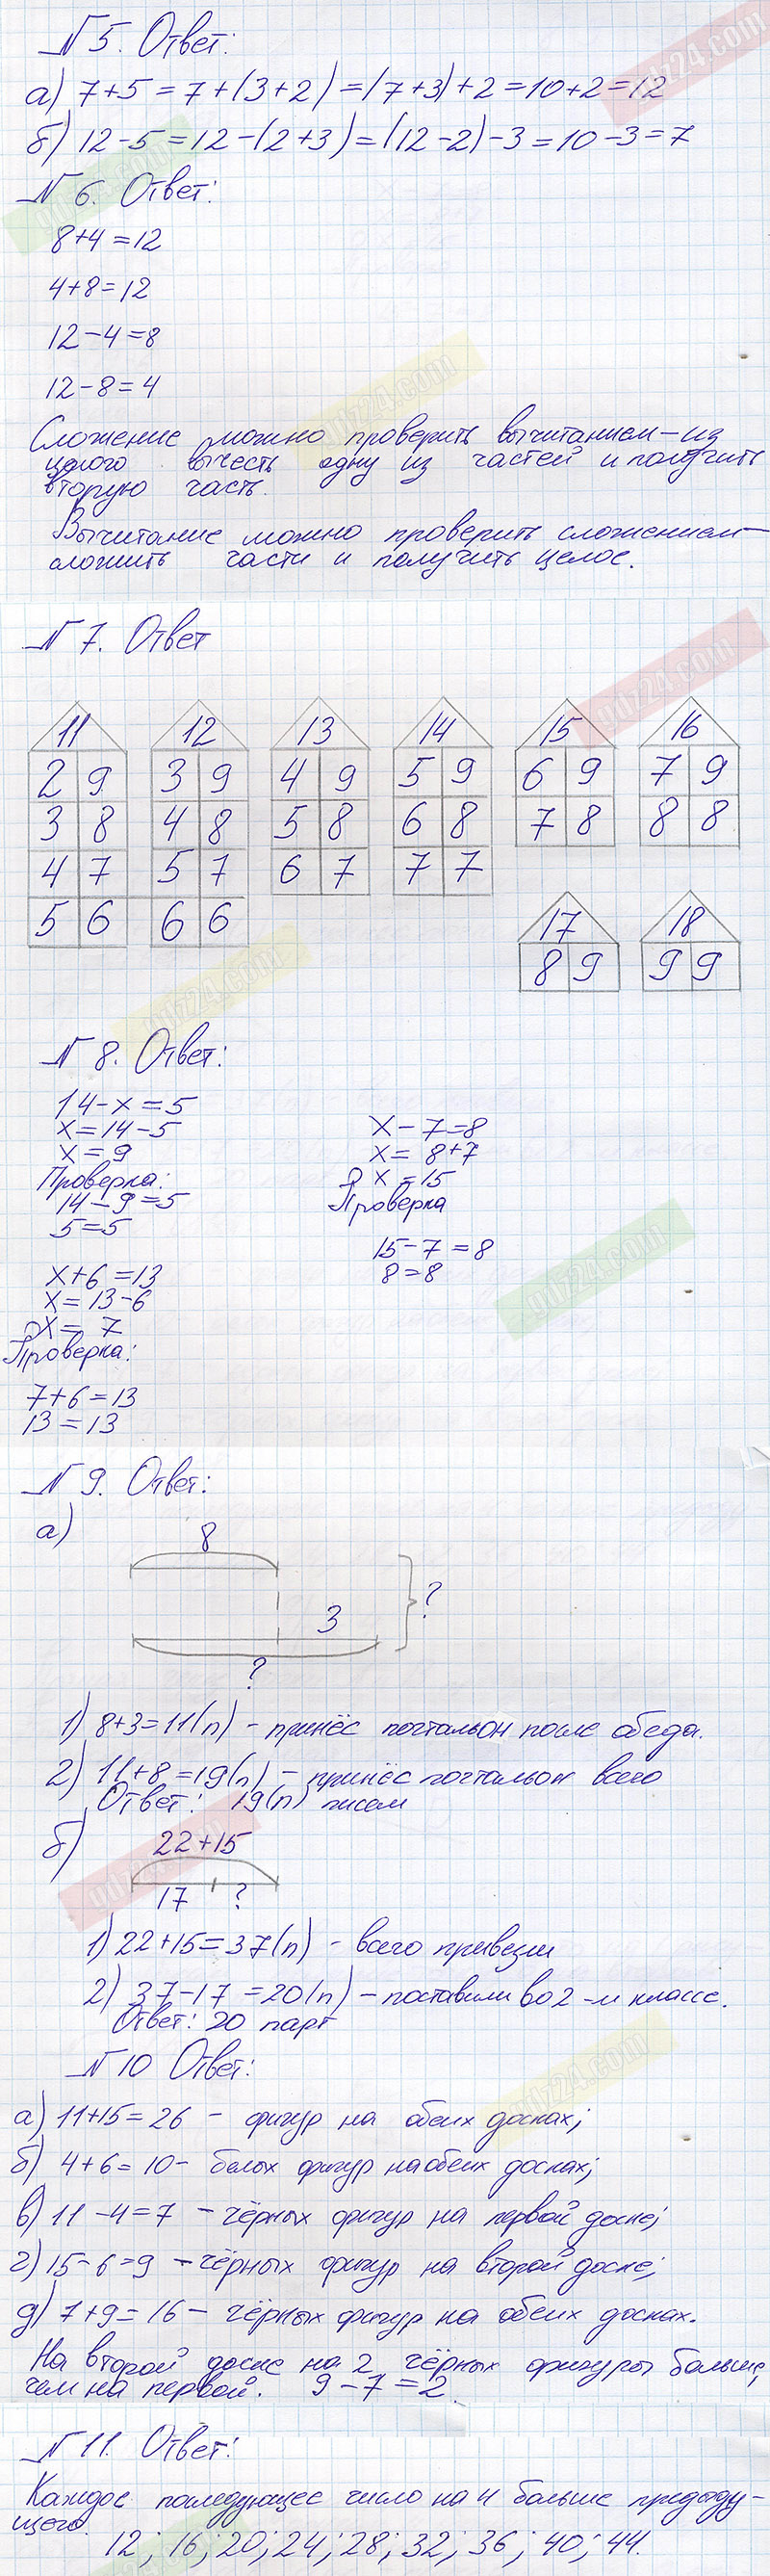 №5. Ответ:
а) 7+5=7+(3+2)=(7+3)+2=10+2=12
б) 12-5=12-(2+3)=(12-2)-3=10-3=7
№6. Ответ:
8+4=12
4+8=12
12-4=8
12-8=4
Сложение можно проверить вычитанием – из
целого вычесть одну из частей и получить
вторую часть.
Вычитание можно проверить сложением –
сложить части и получить целое.
№7. Ответ
11 12 13 14 15 16
2 9 3 9 4 9 5 9 6 9 7 9
3 8 4 8 5 8 6 8 7 8 8 8
4 7 5 7 6 7 7 7
5 6 6 6
17 18
8 9 9 9
№8. Ответ:
14-x=5
x=14-5
x=9
Проверка:
14-9=5
5=5
x-7=8
x=8+7
x=15
Проверка
15-7=8
8=8
x+6=13
x=13-6
x=7
Проверка:
7+6=13
13=13
№9. Ответ:
а)
8
3
?
?
1) 8+3=11(п) – принёс почтальон после обеда.
2) 11+8=19(п) – принёс почтальон всего
Ответ: 19(п) писем
б) 22+15
17 ?
1) 22+15=37(п) – всего привезли
2) 37-17=20(п) – поставили во 2-м классе.
Ответ: 20 парт
№10 Ответ:
а) 11+15=26 – фигур на обеих досках;
б) 4+6=10 – белых фигур на обеих досках;
в) 11-4=7 – чёрных фигур на первой доске;
г) 15-6=9 – чёрных фигур на второй доске;
д) 7+9=16 – чёрных фигур на обеих досках.
На второй доске на 2 чёрных фигуры больше,
чем на первой. 9-7=2.
№11. Ответ:
Каждое последующее число на 4 больше предыду-
щего.
12; 16; 20; 24; 28; 32; 36; 40; 44.
gdz24.com
gdz24.com
gdz24.com
gdz24.com
gdz24.com
gdz24.com
gdz24.com
gdz24.com